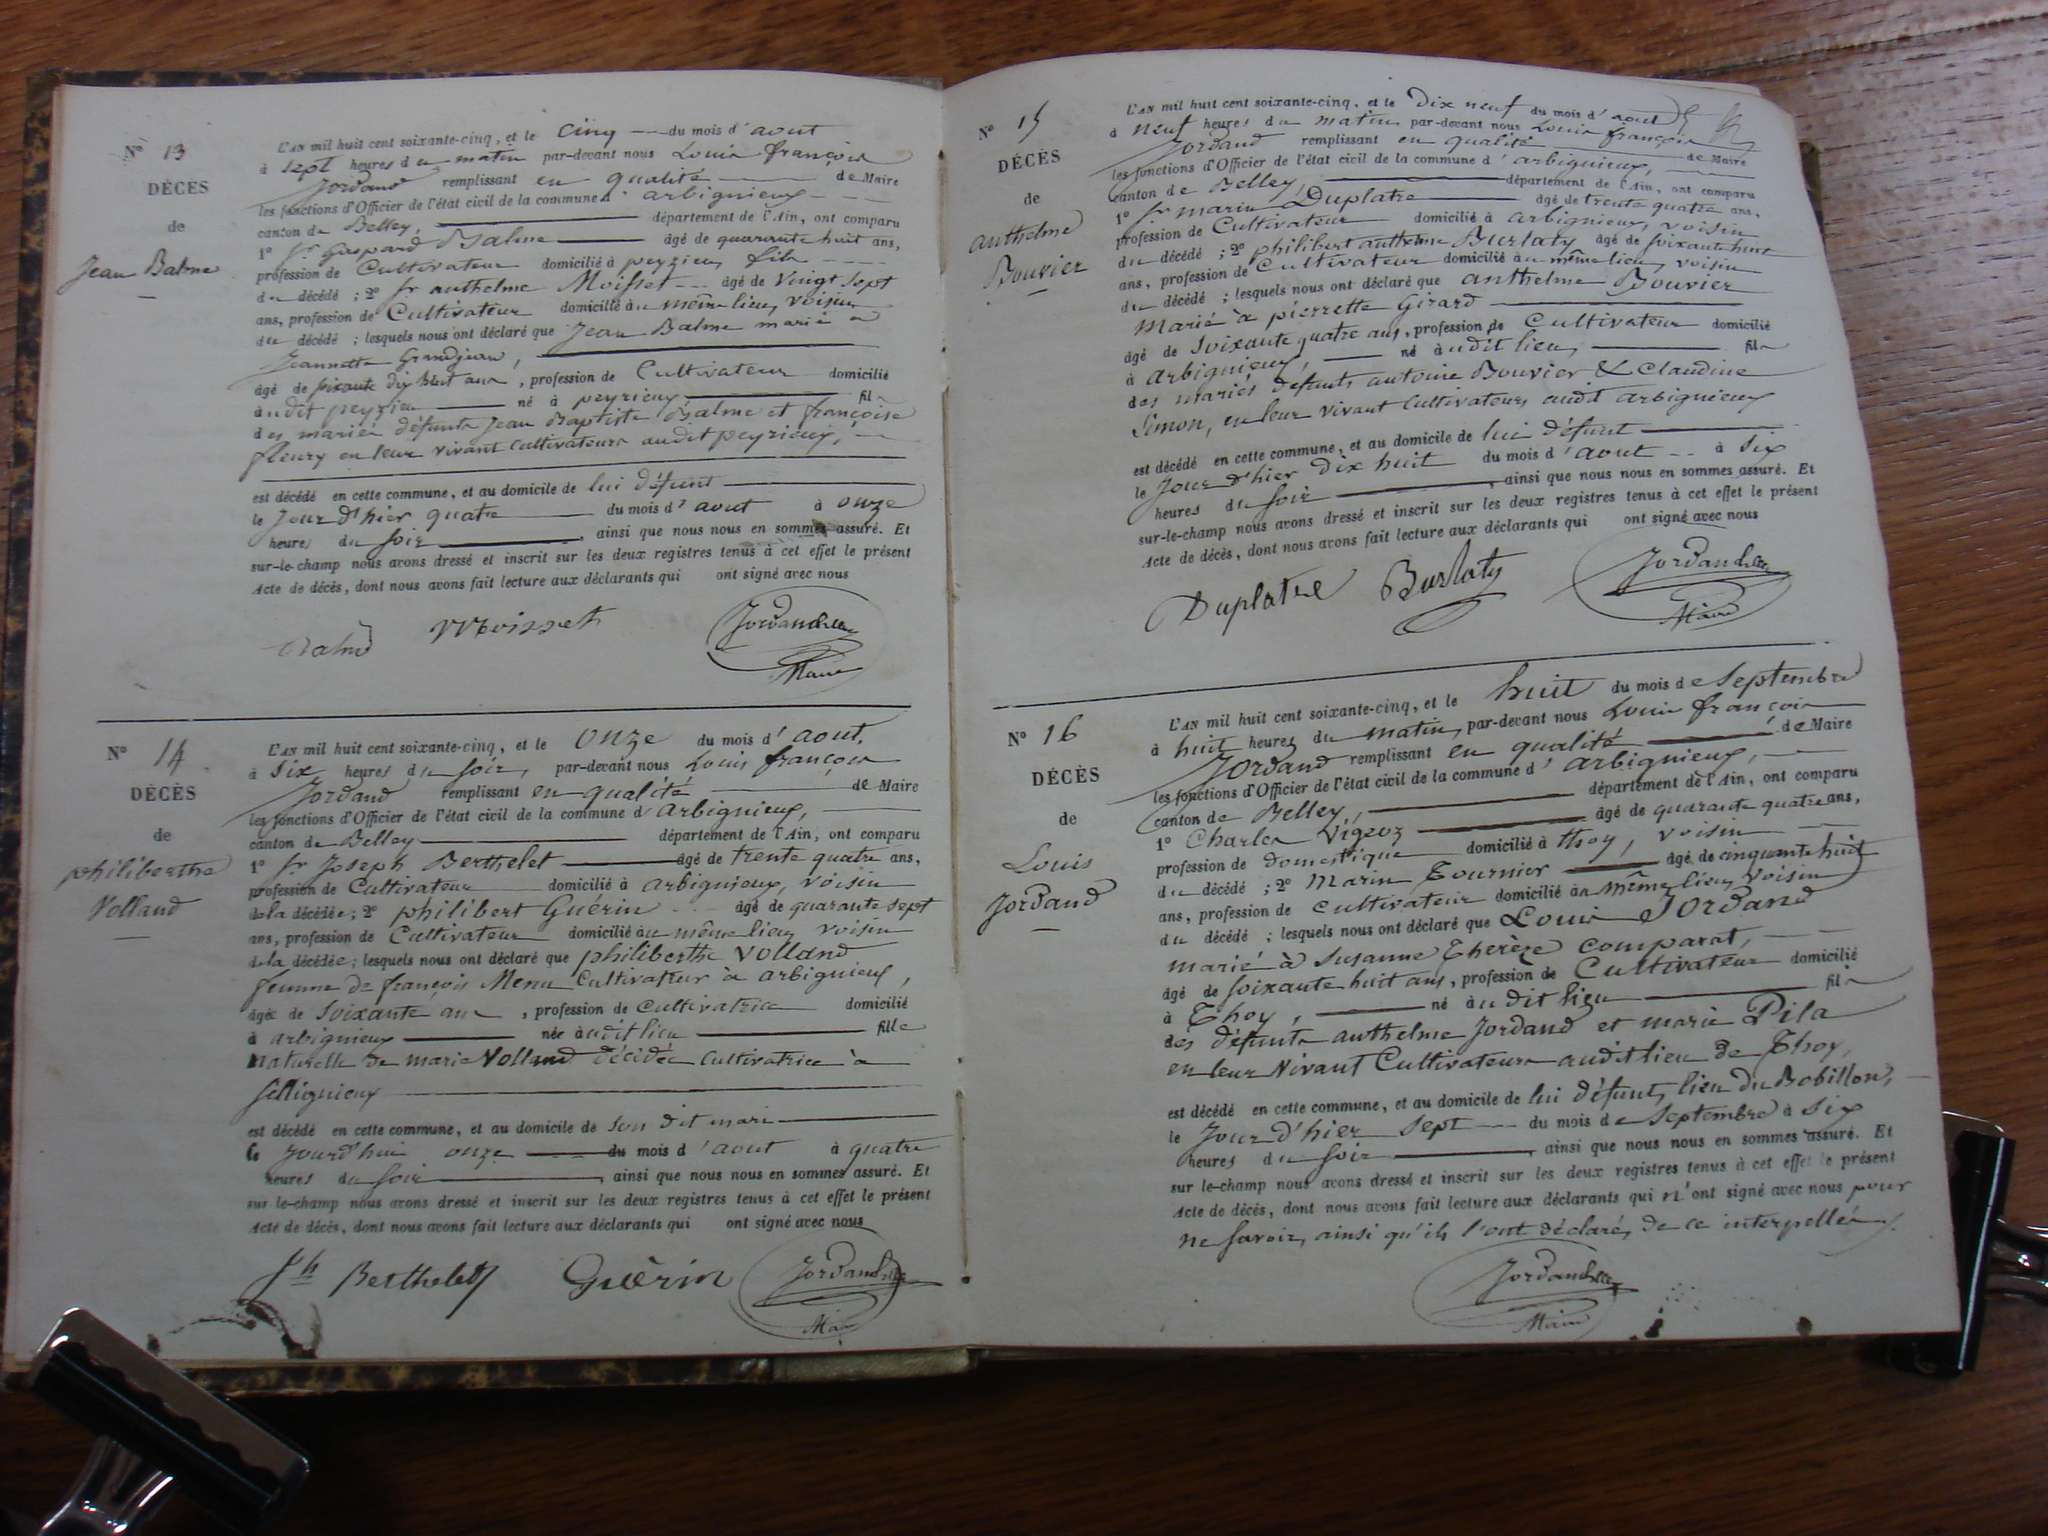 N° 13
DÉCÈS
de
Jean Balme
L'AN mil huit cent soixante-cinq, et le cinq du mois d'aout
à sept heures du matin par-devant nous Louis françois
Jordand remplissant en qualité de Maire
les fonctions d'Officier de l'état civil de la commune d'arbignieux
canton de Belley, département de l'Ain, ont comparu
1° Sr Gaspard Balme âgé de quarante huit ans,
profession de Cultivateur domicilié à peyzieu, fils
du décédé ; 2° Sr anthelme Moisset âgé de Vingt sept
ans, profession de Cultivateur domicilié au même lieu, voisin
du décédé ; lesquels nous ont déclaré que Jean Balme marié à
Jeannette Grandjean,
âgé de soixante dix huit ans, profession de Cultivateur domicilié
à udit peyzieu né à peyrieux, fils
des mariés défunts Jean Baptiste Balme et françoise
fleury en leur vivant cultivateurs audit peyrieux,
est décédé en cette commune, et au domicile de lui défunt
le Jour d'hier quatre du mois d'aout à onze
heures du soir, ainsi que nous nous en sommes assuré. Et
sur-le-champ nous avons dressé et inscrit sur les deux registres tenus à cet effet le présent
Acte de décès, dont nous avons fait lecture aux déclarants qui ont signé avec nous
Moisset
Maire
N° 14
DÉCÈS
de
philiberthe
Volland
L'AN mil huit cent soixante-cinq, et le onze du mois d'aout,
à six heures du soir, par-devant nous Louis françois
Jordand remplissant en qualité de Maire
les fonctions d'Officier de l'état civil de la commune d'arbignieux,
canton de Belley département de l'Ain, ont comparu
1° Sr Joseph Berthelet âgé de trente quatre ans,
profession de Cultivateur domicilié à arbignieux, voisin
de la décédée ; 2° philibert Guérin âgé de quarante sept
ans, profession de Cultivateur domicilié au même lieu, voisin
de la décédée ; lesquels nous ont déclaré que philiberthe Volland
femme de françois Menu Cultivateur à arbignieux,
âgée de soixante ans, profession de Cultivatrice domicilié
à arbignieux née à udit lieu fille
naturelle de marie Volland décédée cultivatrice à
est décédé en cette commune, et au domicile de son dit mari
le Jourd'hui onze du mois d'aout à quatre
heures du soir, ainsi que nous nous en sommes assuré. Et
sur-le-champ nous avons dressé et inscrit sur les deux registres tenus à cet effet le présent
Acte de décès, dont nous avons fait lecture aux déclarants qui ont signé avec nous
Jh Berthelet Guèrin
N° 15
DÉCÈS
de
anthelme
Bouvier
L'AN mil huit cent soixante-cinq, et le dix neuf du mois d'aout
à neuf heures du matin par-devant nous Louis françois
Jordand remplissant en qualité de Maire
les fonctions d'Officier de l'état civil de la commune d'arbignieux,
canton de Belley, département de l'Ain, ont comparu
1° Sr marin Duplatre âgé de trente quatre ans,
profession de Cultivateur domicilié à arbignieux, voisin
du décédé ; 2° philibert anthelme Burlaty âgé de soixante huit
ans, profession de Cultivateur domicilié au même lieu, voisin
du décédé ; lesquels nous ont déclaré que anthelme Bouvier
Marié à pierrette Girard
âgé de soixante quatre ans, profession de Cultivateur domicilié
à arbignieux, né à udit lieu, fils
des mariés défunts antoine Bouvier & Claudine
Simon, en leur vivant cultivateurs audit arbignieux
est décédé en cette commune, et au domicile de lui défunt
le Jour d'hier dix huit du mois d'aout à six
heures du soir, ainsi que nous nous en sommes assuré. Et
sur-le-champ nous avons dressé et inscrit sur les deux registres tenus à cet effet le présent
Acte de décès, dont nous avons fait lecture aux déclarants qui ont signé avec nous
Duplatre Burlaty
Maire
N° 16
DÉCÈS
de
Louis
Jordand
L'AN mil huit cent soixante-cinq, et le huit du mois de Septembre
à huit heures du matin, par-devant nous Louis françois
Jordand remplissant en qualité de Maire
les fonctions d'Officier de l'état civil de la commune d'arbignieux,
canton de Belley, département de l'Ain, ont comparu
1° Charles Vigeoz âgé de quarante quatre ans,
profession de domestique domicilié à thoy, voisin
du décédé ; 2° Marin Tournier âgé de cinquante huit
ans, profession de cultivateur domicilié au même lieu, voisin
du décédé ; lesquels nous ont déclaré que Louis Jordand
marié à Susanne Therèze comparat,
âgé de soixante huit ans, profession de Cultivateur domicilié
à Thoy, né à udit lieu fils
des défunts anthelme Jordand et marie Pila
en leur vivant Cultivateurs audit lieu de Thoy,
est décédé en cette commune, et au domicile de lui défunt, lieu du Bobillon,
le Jour d'hier sept du mois de septembre à six
heures du soir, ainsi que nous nous en sommes assuré. Et
sur-le-champ nous avons dressé et inscrit sur les deux registres tenus à cet effet le présent
Acte de décès, dont nous avons fait lecture aux déclarants qui n'ont signé avec nous pour
ne savoir, ainsi qu'ils l'ont déclaré, de ce interpellés.
Maire